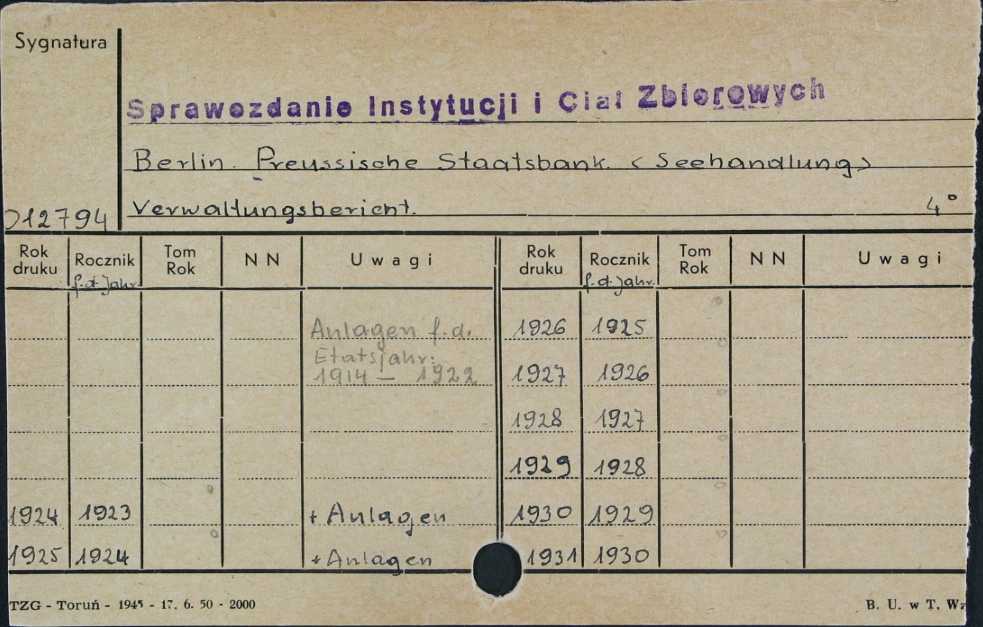 Sygnatura
Sprawozdanie Instytucji i Ciał Zbiorowych
Berlin. Preussische Staatsbank. (Seehandlung)
012794 Verwaltungsbericht. 4°
Rok druku Rocznik f.d. Jahr Tom Rok NN Uwagi Rok druku Rocznik f.d. Jahr. Tom Rok NN Uwagi
Anlagen f.d. 1926 1925
Etatsjahr:
1914 – 1922 1927 1926
1928 1927
1929 1928
1924 1923 + Anlagen 1930 1929
1925 1924 + Anlagen 1931 1930
TZG - Toruń - 1945 - 17. 6. 50 - 2000 B. U. w T.